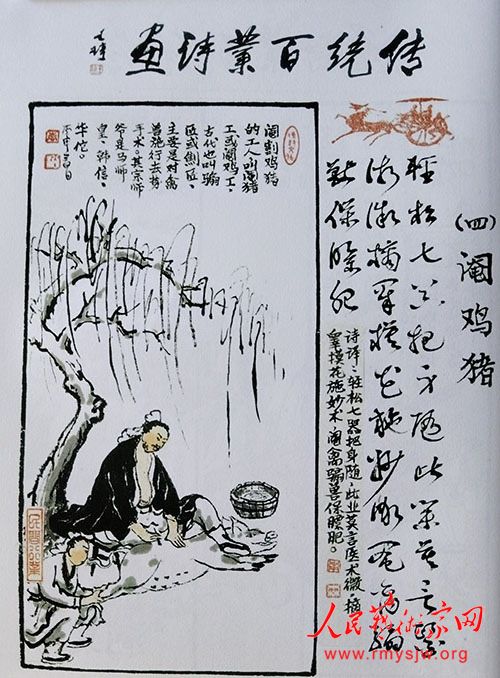 传统百业诗画
(四)阉鸡猪
轻松七器把身随此业莫言医
术微摘睾摸花施妙术阉禽骟
兽保膘肥
诗译:轻松七器把身随,此业莫言医术微,摘
睾摸花施妙术,阉禽骟兽保膘肥。
阉割鸡猪
的工人叫阉猪
工或阉鸡工,
古代也叫骟
匠或劁匠,
主要是对禽
兽施行去势
手术。其宗师
爷是马师
皇、韩信、
华佗。
人民艺术家网
www.rmysjw.org